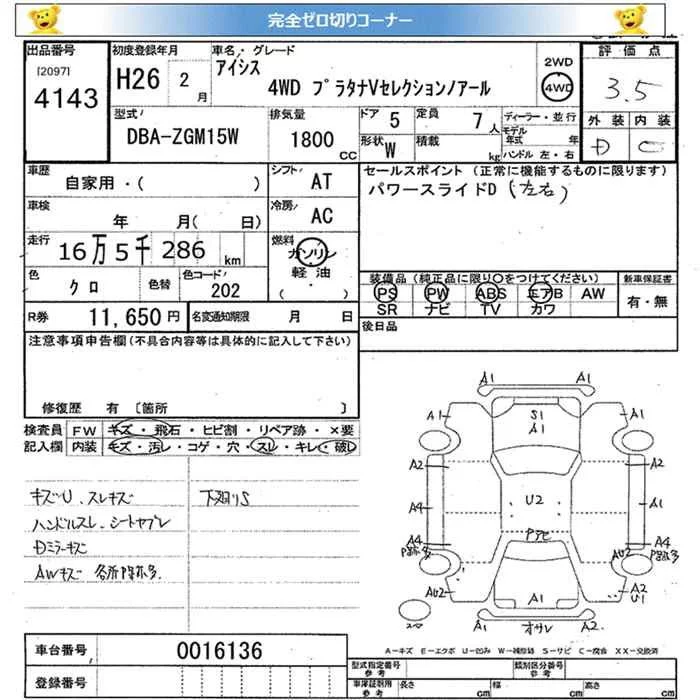 完全ゼロ切りコーナー
出品番号
[2097]
4143
初度登録年月
H26 2月
車名・グレード
アイシス
4WD プラタナVセレクションノアール
2WD
4WD
評価点
3.5
外装 内装
D C
型式
DBA-ZGM15W
排気量
1800
CC
ドア 5
形状 W
定員 7人
積載 kg
ディーラー・並行
モデル年式 年
ハンドル 左・右
車歴
自家用・( )
シフト AT
車検
年 月( 日)
冷房 AC
走行
16万5千286km
燃料
ガソリン
軽油
( )
色
クロ
色替
色コード
202
R券 11,650円
名変通知期限 月 日
セールスポイント (正常に機能するものに限ります)
パワースライドD (左右)
装備品 (純正品に限り○をつけてください)
PS PW ABS エアB AW
SR ナビ TV カワ
新車保証書
有・無
後日品
注意事項申告欄(不具合内容等は具体的に記入して下さい)
修復歴 有 [箇所 ]
検査員 FW キズ・飛石・ヒビ割・リペア跡・×要
記入欄 内装 キズ・汚レ・コゲ・穴・スレ・キレ・破レ
キズU、スレキズ
ハンドルスレ、シートヤブレ
Dミラーキズ
AWキズ
下廻りS
A1 A1
A1 S1 A1
A1
A2 A2
A4 U2 A1
A4 A4
AU2 AU2
A1 A2
U1
A1 オサレ A2
A-キズ E-エクボ U-凹み W-補修跡 S-サビ C-腐食 XX-交換済
車台番号 0016136
登録番号
型式指定番号
参考
類別区分番号
参考
車庫証明用
参考
長さ cm 幅 cm 高さ cm